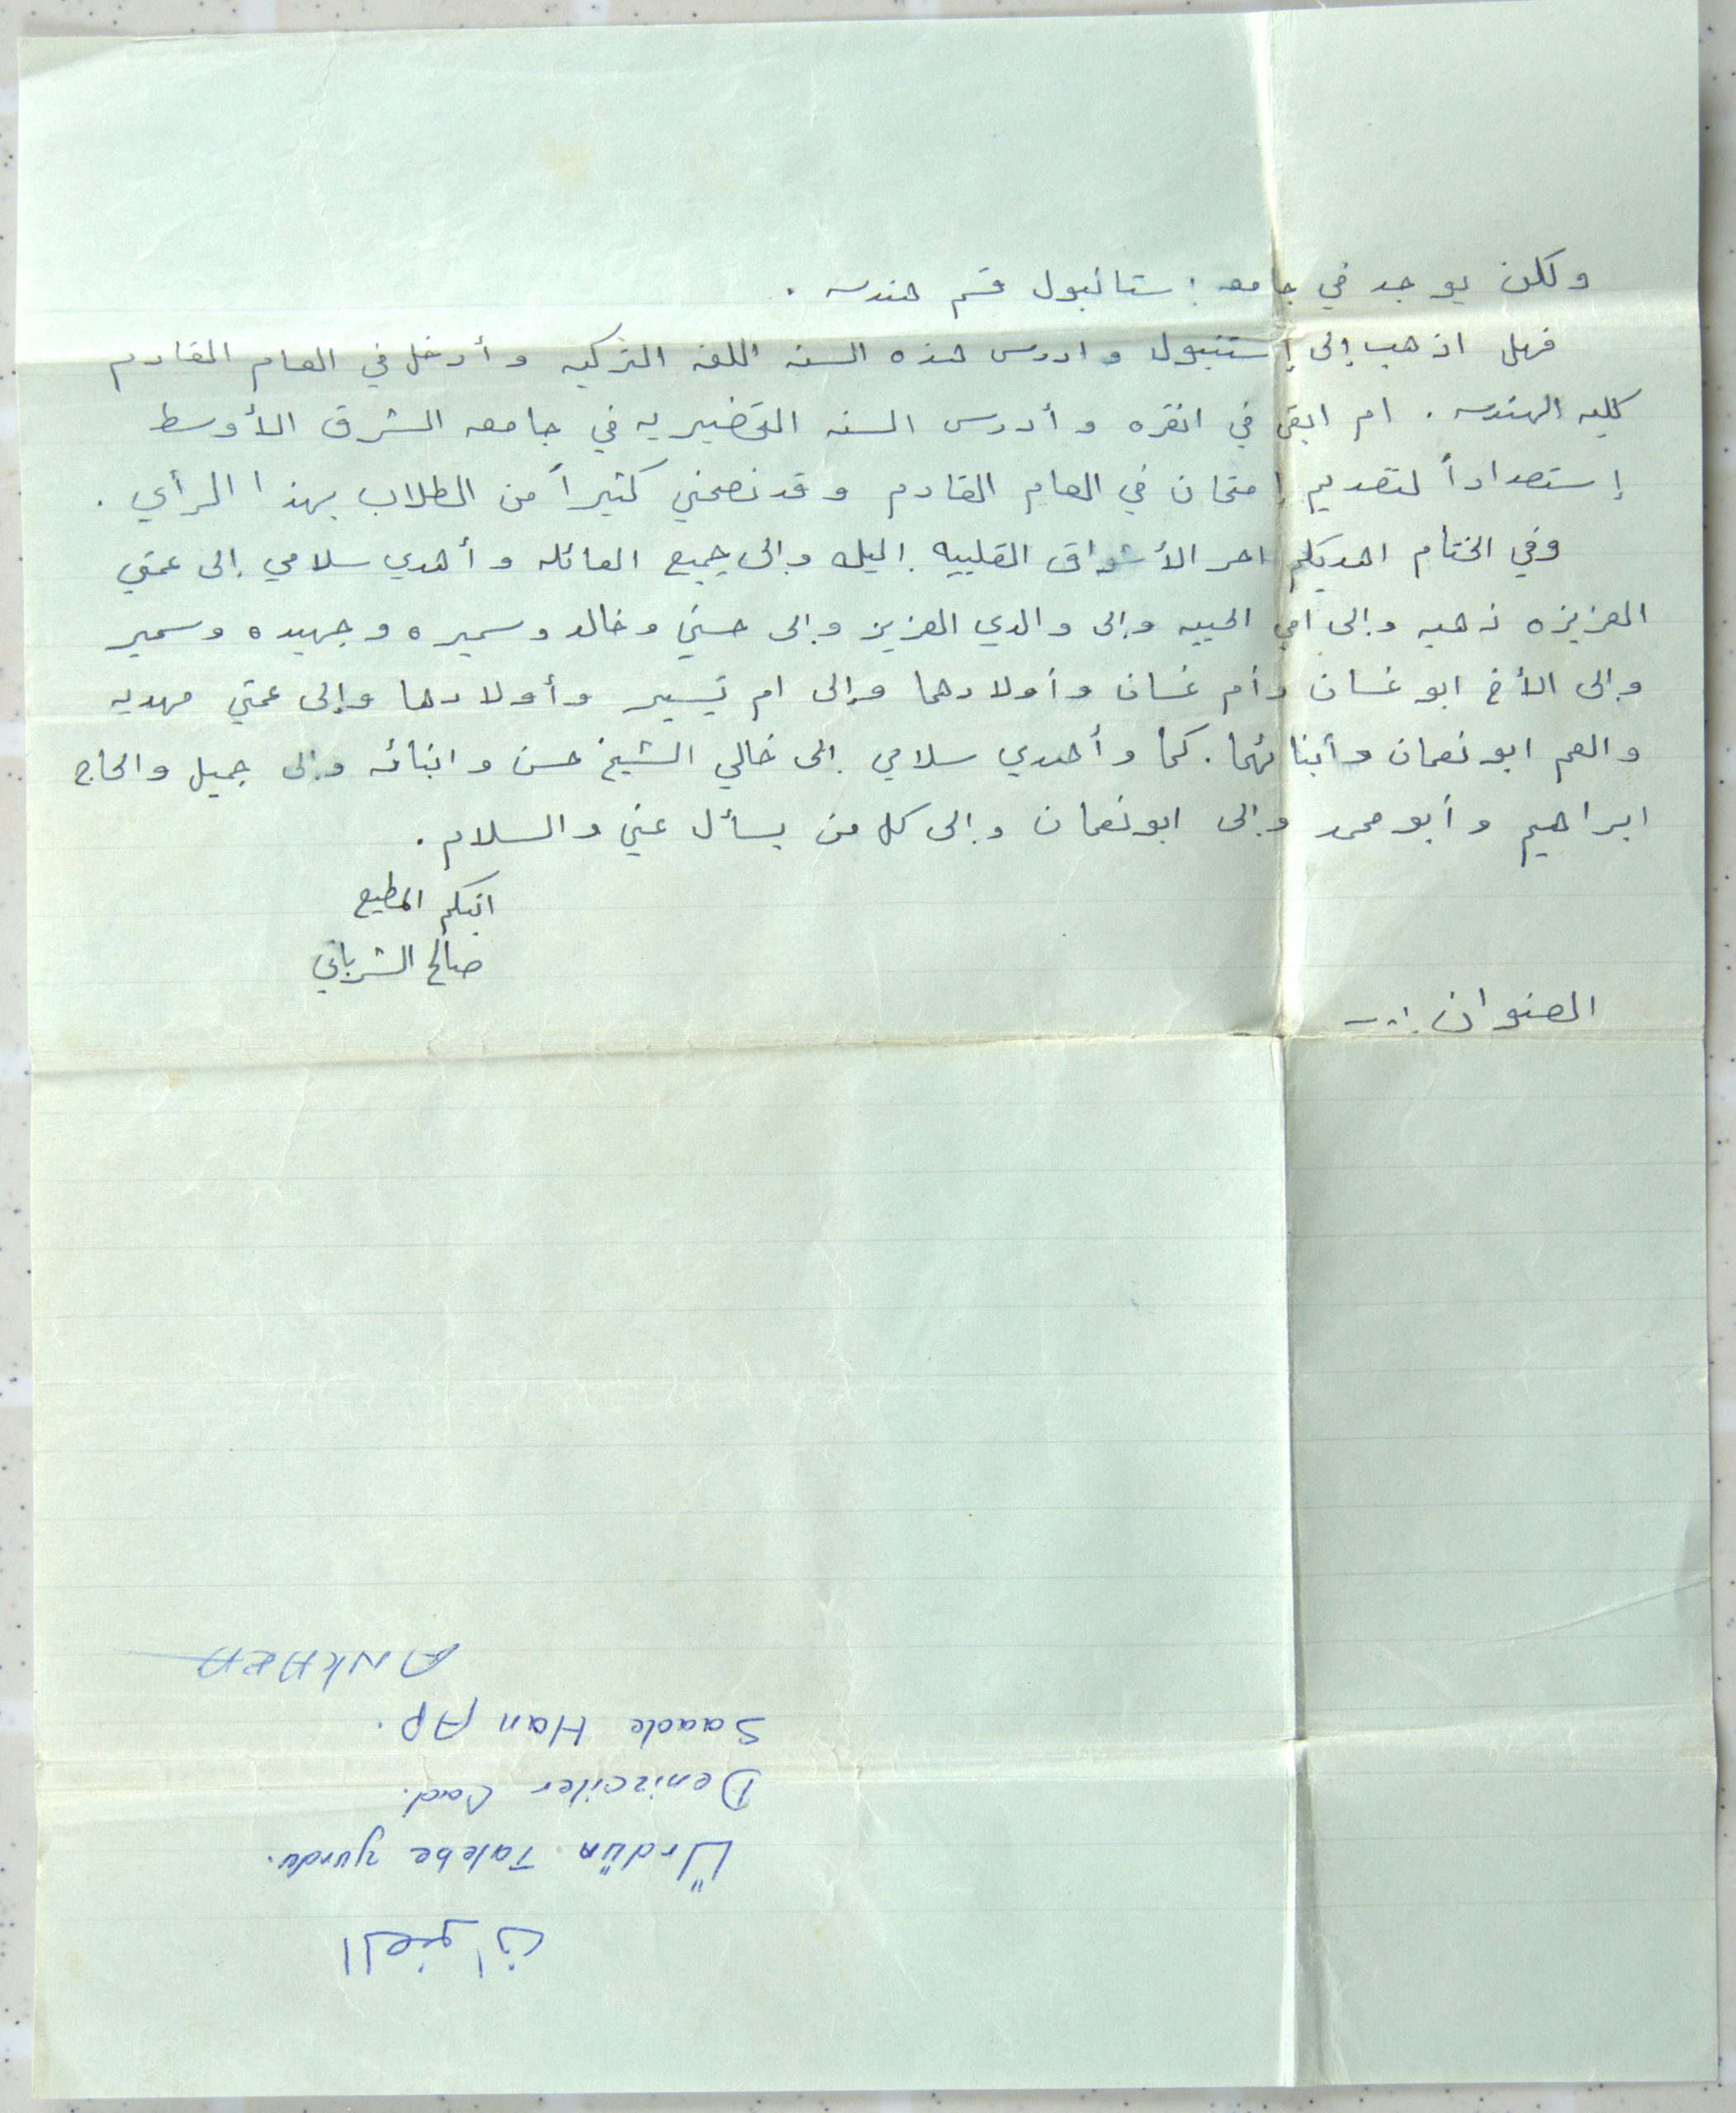 ولكن يوجد في جامعه إستانبول قسم هندسه .
فهل اذهب إلى إستنبول وادرس هذه السنه اللغه التركيه وأدخل في العام القادم
كليه الهندسه . ام ابقى في انقره وأدرس السنه التحضيريه في جامعه الشرق الأوسط
إستعداداً لتقديم إمتحان في العام القادم وقد نصحني كثيراً من الطلاب بهذا الرأي .
وفي الختام اهديكم احر الأشواق القلبيه إليك وإلى جميع العائله وأهدي سلامي إلى عمتي
العزيزه ذهبيه وإلى امي الحبيبه وإلى والدي العزيز وإلى حسني وخالد وسميره وجهيده وسمير
وإلى الأخ ابو غسان وأم غسان وأولادهما وإلى ام تيسير وأولادها وإلى عمتي مهديه
والعم ابو نعمان وأبنائهما . كما وأهدي سلامي إلى خالي الشيخ حسن وابنائه وإلى جميل والحاج
ابراهيم وأبو محمد وإلى ابو نعمان وإلى كل من يسأل عني والسلام .
ابنكم المطيع
صالح الشرباتي
العنوان :-
العنوان
Ürdün Talebe yurdu.
Denizciler Cad.
Saade Han Ap.
ANKARA